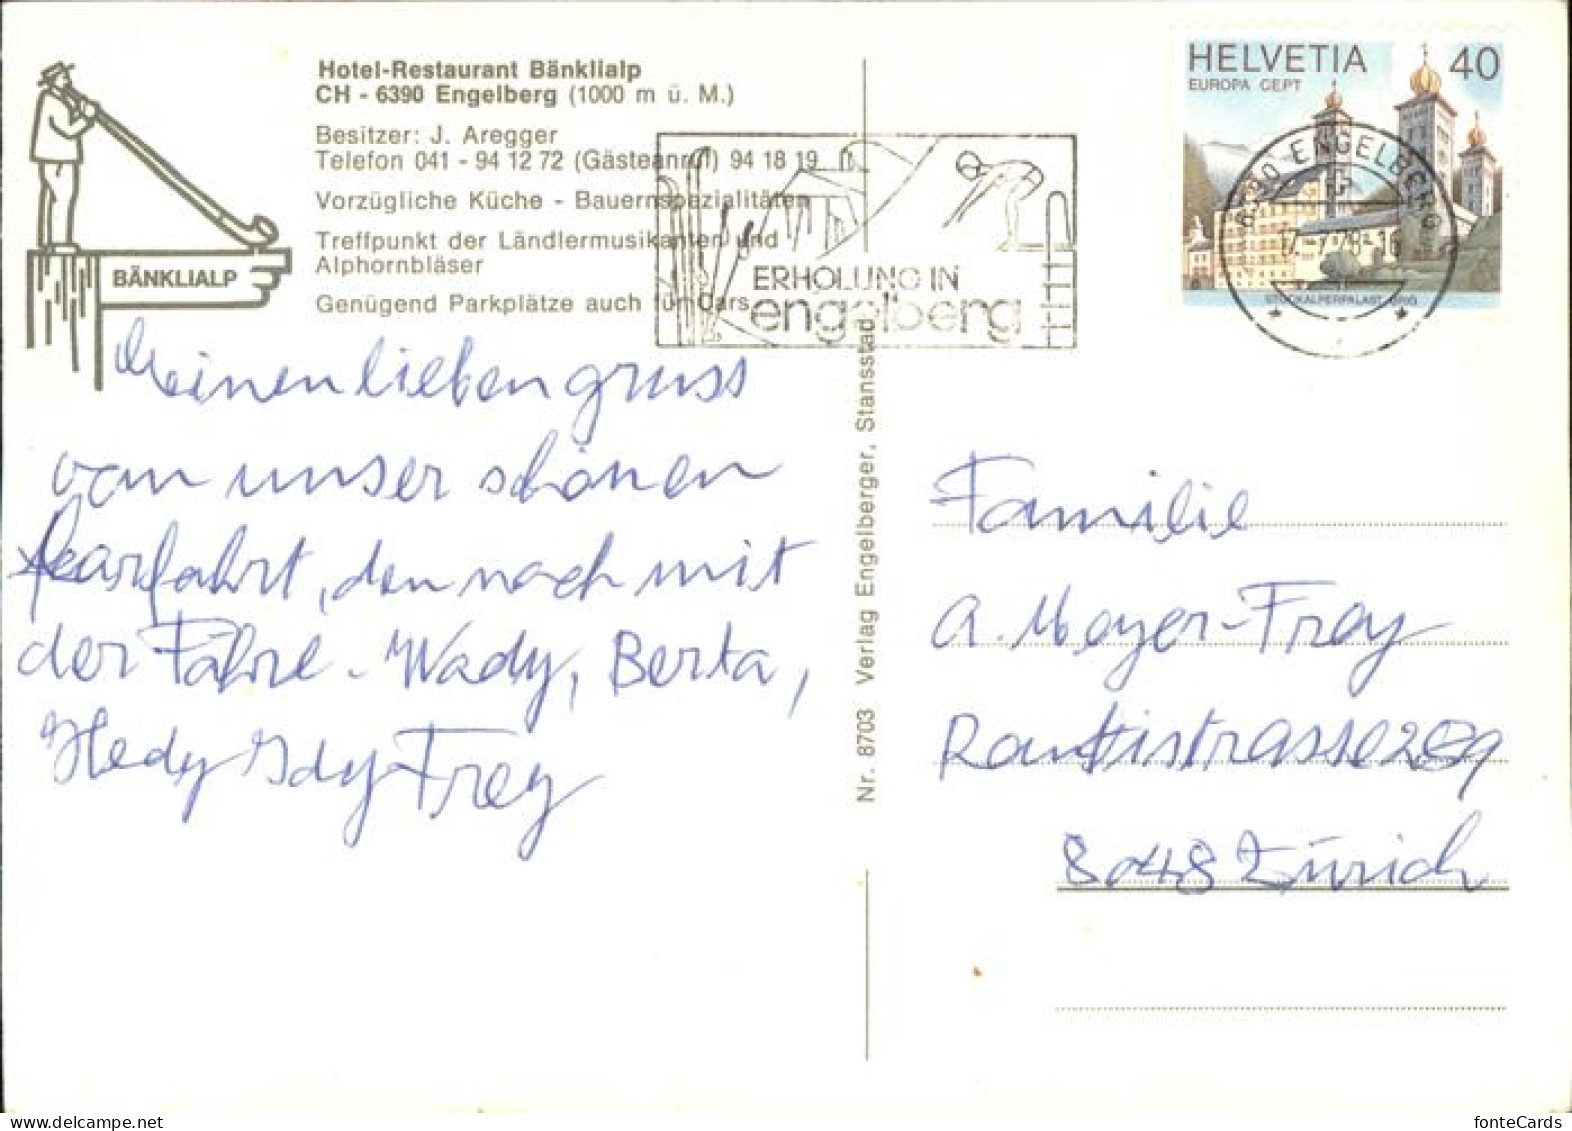 Hotel-Restaurant Bänklialp
CH - 6390 Engelberg (1000 m ü. M.)
Besitzer: J. Aregger
Telefon 041 - 94 12 72 (Gästeanruf) 94 18 19
Vorzügliche Küche - Bauernspezialitäten
Treffpunkt der Ländlermusikanten und
Alphornbläser
Genügend Parkplätze auch für Cars
BÄNKLIALP
ERHOLUNG IN
engelberg
HELVETIA 40
EUROPA CEPT
STOCKALPERPALAST BRIG
6390 ENGELBERG
Meinen lieben gruss
vom unser schönen
Carfahrt, dan nach mit
der Fähre. Wady, Berta,
Hedy Idy Frey
Nr. 8703 Verlag Engelberger, Stansstad
Familie
A. Meyer-Frey
Rautistrasse 209
8048 Zürich
fonteCards